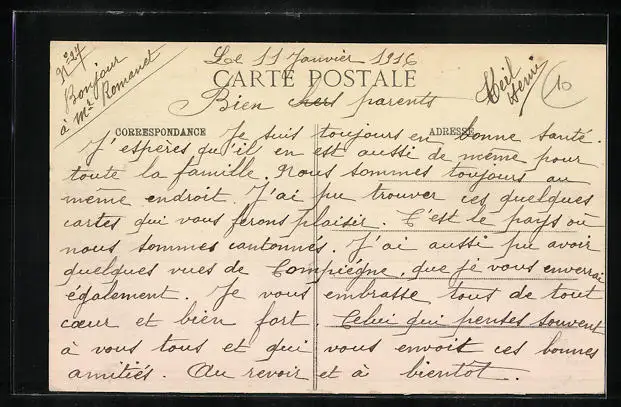 N° 27
Bonjour
à Mr Romanet
Le 11 Janvier 1916
CARTE POSTALE
Bien chers parents
10
CORRESPONDANCE
ADRESSE
Je suis toujours en bonne santé.
J'espères qu'il en est aussi de même pour
toute la famille. Nous sommes toujours au
même endroit. J'ai pu trouver ces quelques
cartes qui vous ferons plaisir. C'est le pays où
nous sommes cantonnés. J'ai aussi pu avoir
quelques vues de Compiégne, que je vous enverrai
également. Je vous embrasse tous de tout
cœur et bien fort. Celui qui penses souvent
à vous tous et qui vous envoit ces bonnes
amitiés. Au revoir et à bientôt.